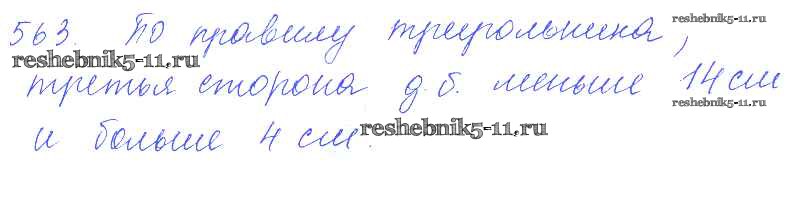 563. По правилу треугольника,
reshebnik5-11.ru
reshebnik5-11.ru
третья сторона д.б. меньше 14 см
reshebnik5-11.ru
и больше 4 см.
reshebnik5-11.ru